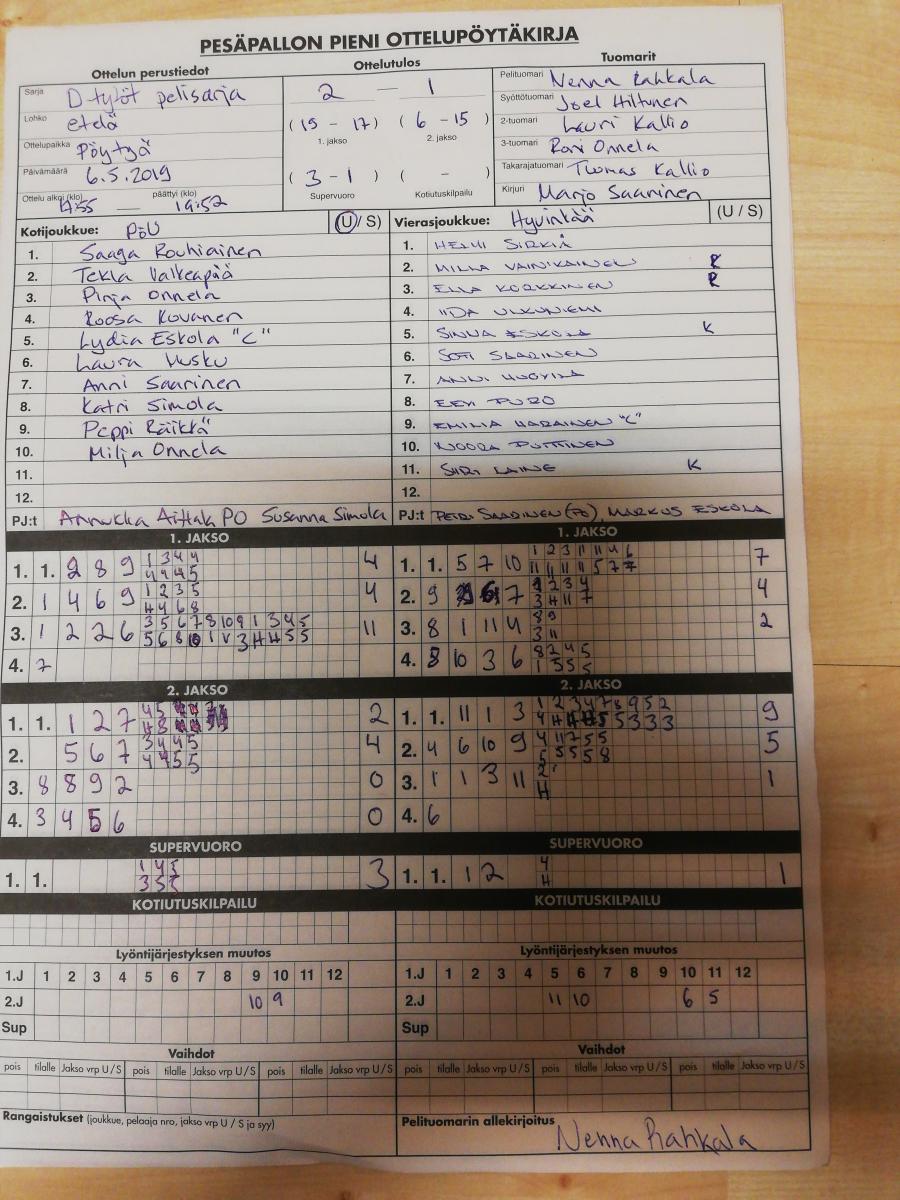 PESÄPALLON PIENI OTTELUPÖYTÄKIRJA
Ottelun perustiedot
Sarja D-tytöt pelisarja
Lohko etelä
Ottelupaikka Pöytyä
Päivämäärä 6.5.2019
Ottelu alkoi (klo) päättyi (klo) 19:52
Ottelutulos
2 — 1
(15 - 17) (6 - 15)
1. jakso 2. jakso
(3 - 1) ( - )
Supervuoro Kotiutuskilpailu
Tuomarit
Pelituomari Nenna Rahkala
Syöttötuomari Joel Hiltunen
2-tuomari Lauri Kallio
3-tuomari Roni Onnela
Takarajatuomari Tuomas Kallio
Kirjuri Marjo Saarinen
Kotijoukkue: PöU (U / S)
1. Saaga Rouhiainen
2. Tekla Valkeapää
3. Pinja Onnela
4. Roosa Kovanen
5. Lydia Eskola "C"
6. Laura Uusku
7. Anni Saarinen
8. Katri Simola
9. Peppi Räikkä
10. Milja Onnela
11.
12.
PJ:t Annukka Aittala PO Susanna Simola
Vierasjoukkue: Hyvinkää (U / S)
1. HELMI SIRKIÄ
2. MILLA VAINIKAINEN R
3. ELLA KORKKINEN R
4. IIDA
5. SINNA ESKOLA K
6. SOFI SAARINEN
7. ANNI
8. EEVI PURO
9. EMILIA HARAINEN "C"
10. NOORA PUTTINEN
11. SIIRI LAINE K
12.
PJ:t PETRI SAARINEN (PO), MARKUS ESKOLA
1. JAKSO
1. 1. 2 8 9 4
2. 1 4 6 9 4
3. 1 2 2 6 11
4. 7
1. JAKSO
1. 1. 5 7 10 7
2. 9 7 4
3. 8 1 11 4 2
4. 8 10 3 6
2. JAKSO
1. 1. 1 2 7 2
2. 5 6 7 4
3. 8 8 9 2 0
4. 3 4 5 6 0
2. JAKSO
1. 1. 11 1 3 9
2. 4 6 10 9 5
3. 1 1 3 11 1
4. 6
SUPERVUORO
1. 1. 3
SUPERVUORO
1. 1. 1 2 1
KOTIUTUSKILPAILU
KOTIUTUSKILPAILU
Lyöntijärjestyksen muutos
1.J 1 2 3 4 5 6 7 8 9 10 11 12
2.J 10 9
Sup
Lyöntijärjestyksen muutos
1.J 1 2 3 4 5 6 7 8 9 10 11 12
2.J 11 10 6 5
Sup
Vaihdot
pois tilalle Jakso vrp U/S pois tilalle Jakso vrp U/S pois tilalle Jakso vrp U/S
Vaihdot
pois tilalle Jakso vrp U/S pois tilalle Jakso vrp U/S pois tilalle Jakso vrp U/S
Rangaistukset (joukkue, pelaaja nro, jakso vrp U / S ja syy)
Pelituomarin allekirjoitus
Nenna Rahkala